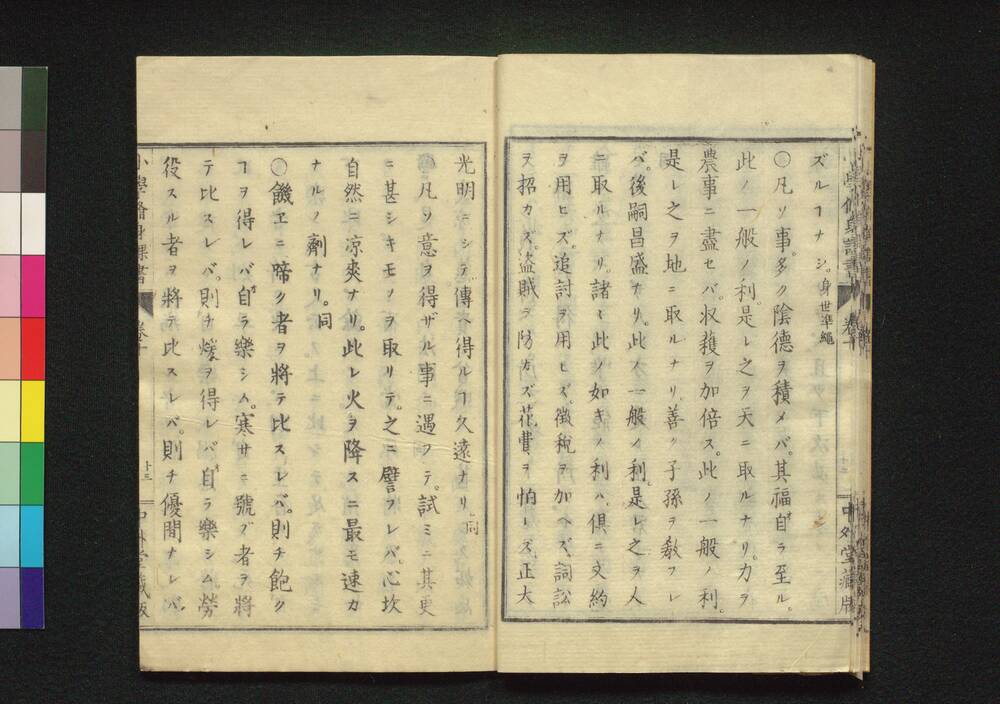 ズルヿナシ。身世準繩
〇凡ソ事。多ク陰德ヲ積メバ。其福自ラ至ル。
此ノ一般ノ利。是レ之ヲ天ニ取ルナリ。力ヲ
農事ニ盡セバ。収穫ヲ加倍ス。此ノ一般ノ利。
是レ之ヲ地ニ取ルナリ。善ク子孫ヲ敎フレ
バ。後嗣昌盛ナリ。此ノ一般ノ利。是レ之ヲ人
ニ取ルナリ。諸〻此ノ如キノ利ハ。俱ニ文約
ヲ用ヒズ。追討ヲ用ヒズ。徴稅ヲ加ヘズ。詞訟
ヲ招カズ。盜賊ヲ防カズ。花費ヲ怕レズ。正大
中外堂藏版
光明ニシテ。傳ヘ得ルヿ久遠ナリ。同
〇凡ソ意ヲ得ザル事ニ遇フテ。試ミニ其更
ニ甚シキモノヲ取リテ。之ニ譬フレバ。心坎
自然ニ凉爽ナリ。此レ火ヲ降スニ最モ速カ
ナルノ劑ナリ。同
〇饑ヱニ啼ク者ヲ將テ比スレバ。則チ飽ク
ヿヲ得レバ自ラ樂シム。寒サニ號ブ者ヲ將
テ比スレバ。則チ煖ヲ得レバ自ラ樂シム。勞
役スル者ヲ將テ比スレバ。則チ優閒ナレバ。
小學脩身課書 卷十 十三 中外堂藏版